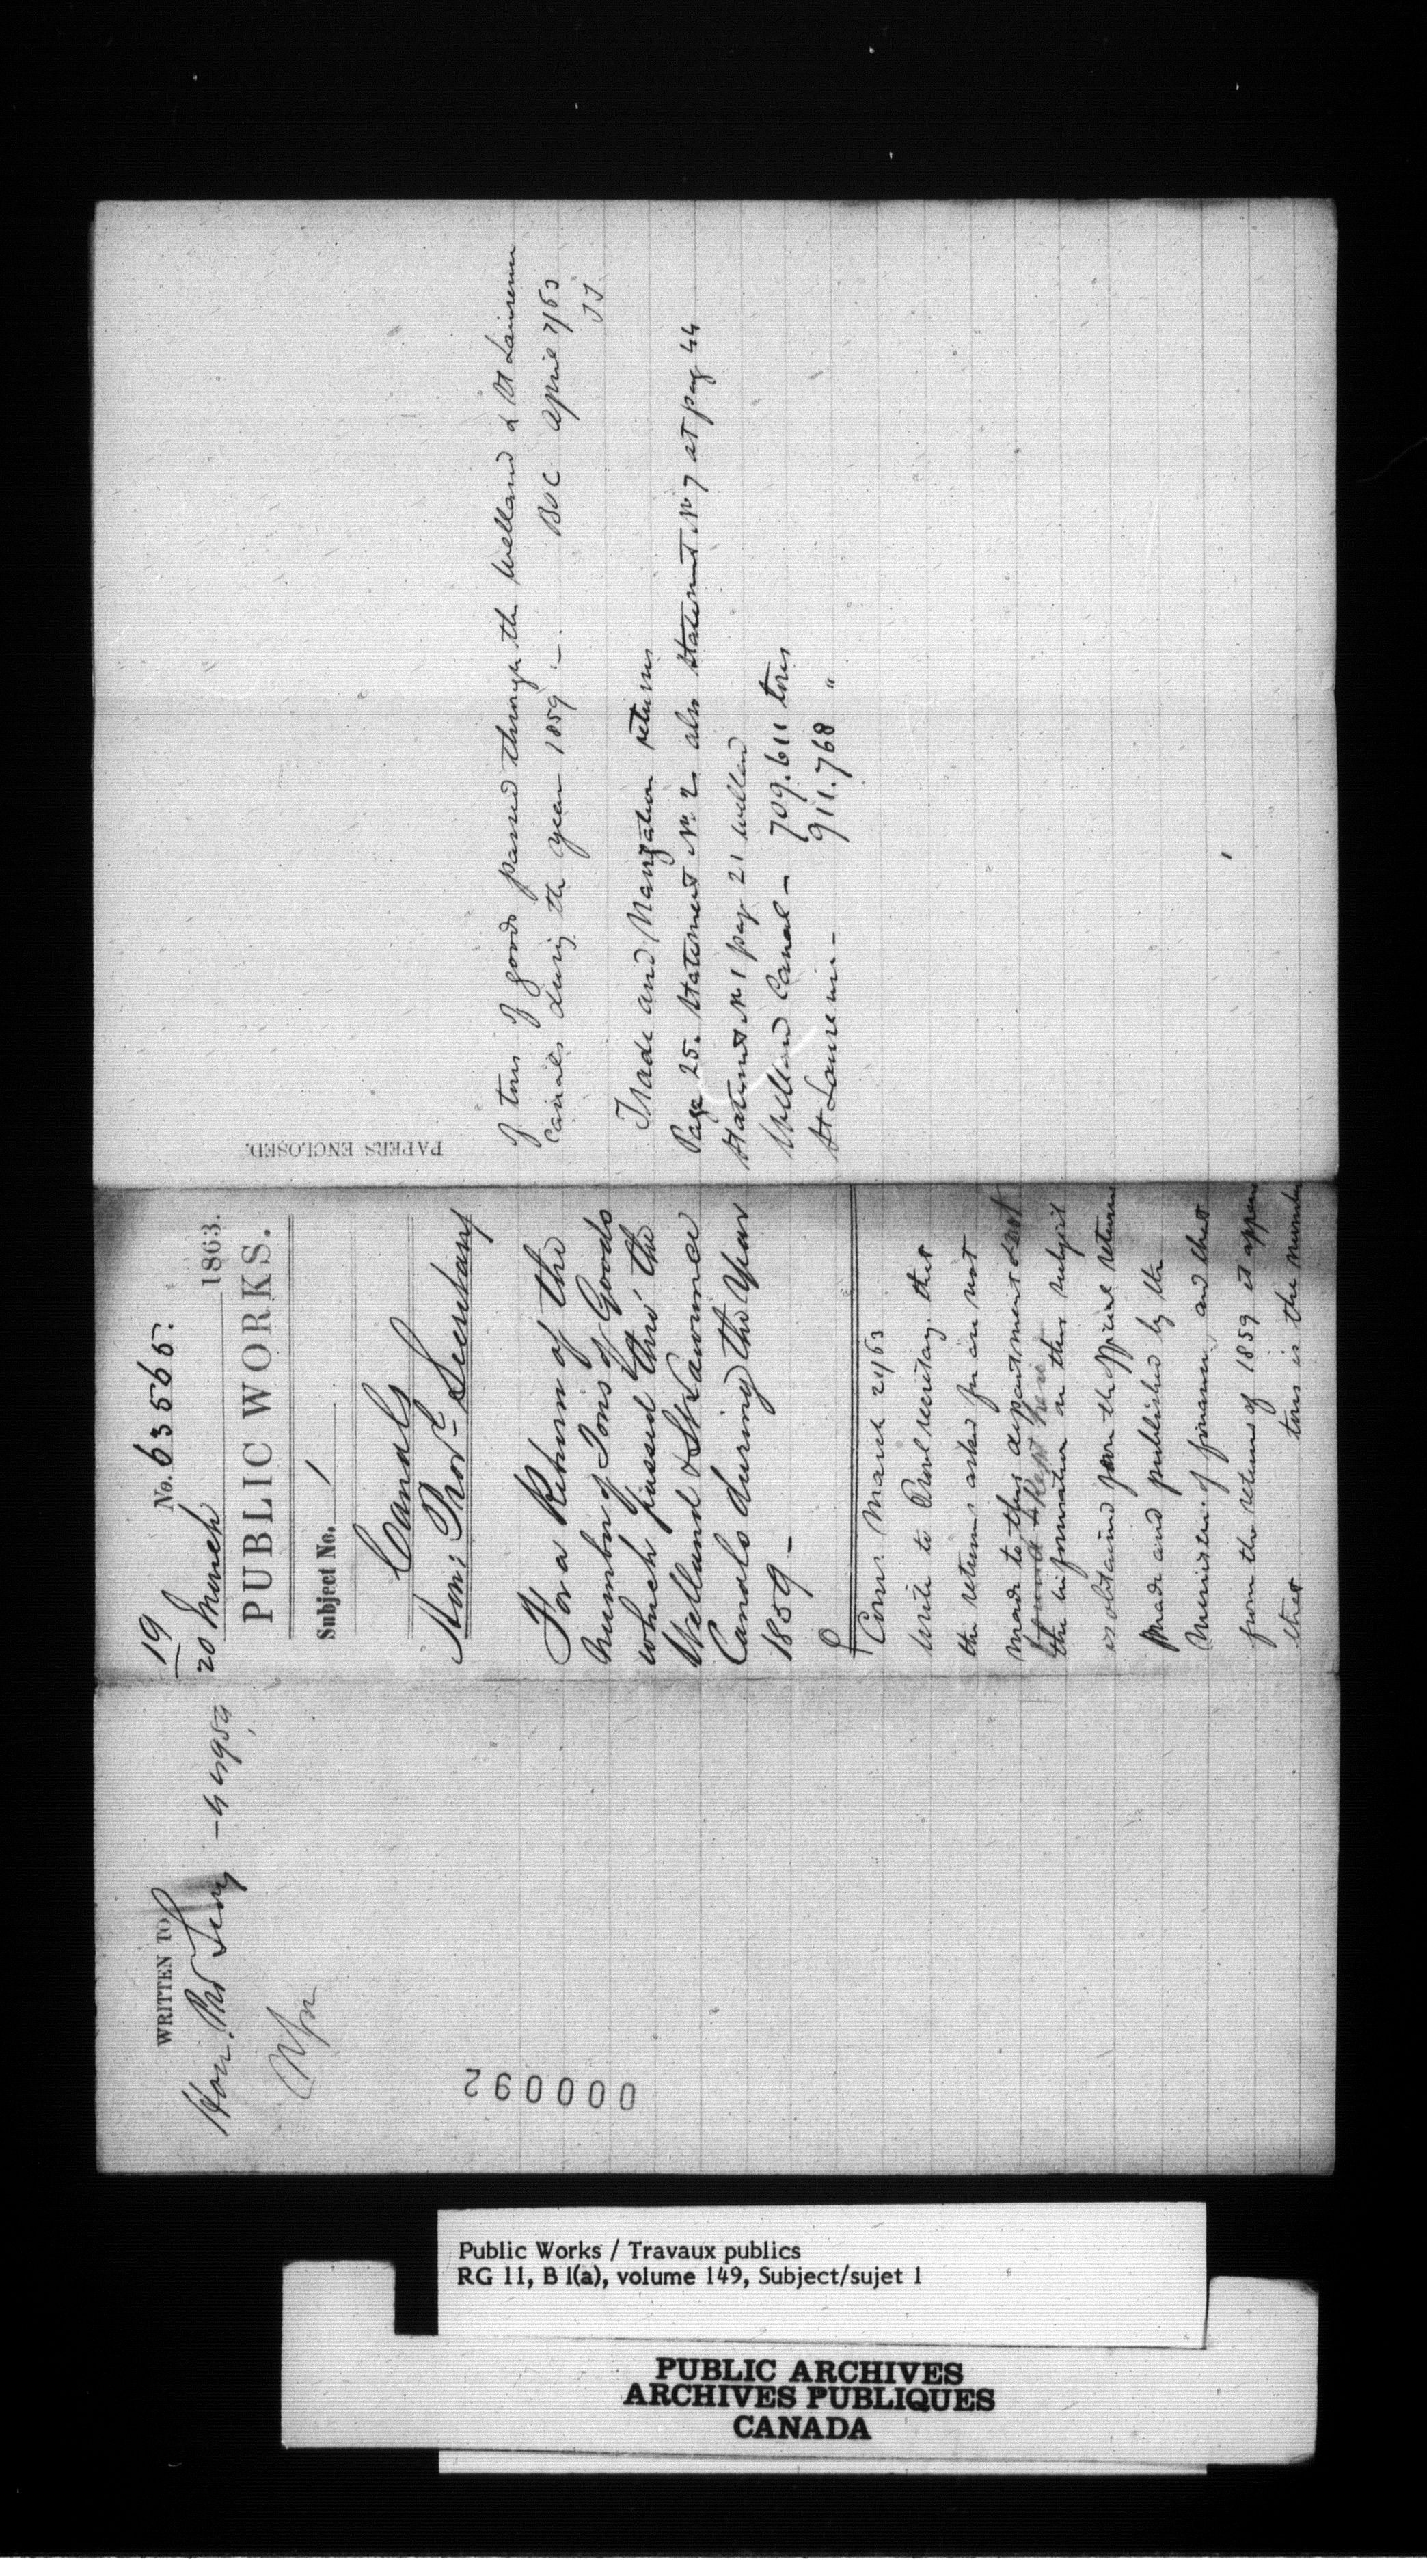 WRITTEN TO
Hon. Prov Secy
000092
19
20 March
No. 63565.
1863.
PUBLIC WORKS.
Subject No. 1
Canals
Hon: Prov.l Secretary
For a Return of the
number of Tons of Goods
which passed thro' the
Welland & St Lawrence
Canals during the year
1859 –
Com March 21/63
Write to Provl secretary. that
the returns asked for are not
made to this department & not
the information on this subject
is obtained from the official returns
made and published by the
Minister of finance, and that
from the returns of 1859 it appears
that tons is the number
PAPERS ENCLOSED.
of tons of goods passed through the Welland & St Lawrence
canals during the year 1859 –
BUC April 2/63
TT
Trade and Navigation returns
Page 25. Statement No 2 also Statement No 7 at page 44
Statement No 1 page 21 welland
Welland Canal – 709.611 tons
St Lawrence – 911.768 "
Public Works / Travaux publics
RG 11, B 1(a), volume 149, Subject/sujet 1
PUBLIC ARCHIVES
ARCHIVES PUBLIQUES
CANADA